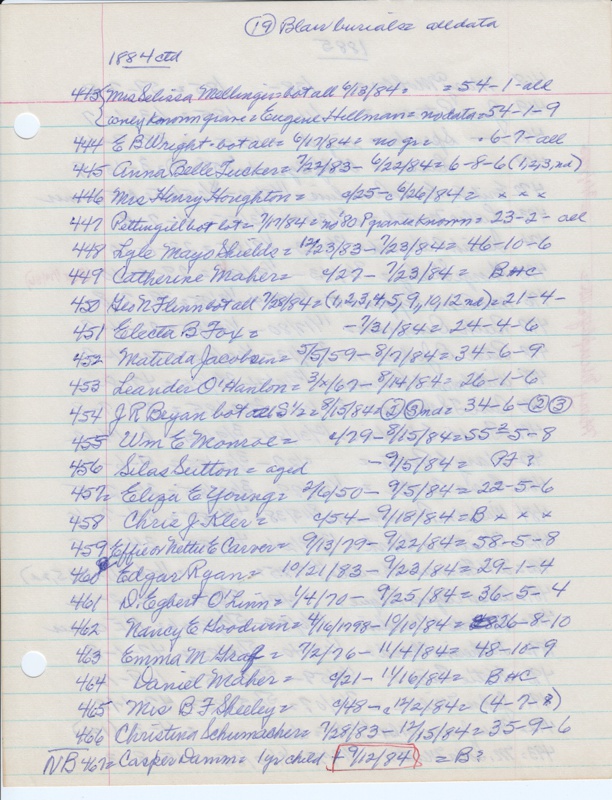 (19) Blair burials all data
1884 ctd
443 { Mrs Selissa Mellinger = bot all 6/13/84 = = 54-1-all
only known grave = Eugene Hillman = no data = 54-1-9
444 E B Wright - bot all = 6/17/84 = no gr = 6-7-all
445 Anna Belle Tucker = 7/22/83 - 6/22/84 = 6-8-6 (1,2,3, nd)
446 Mrs Henry Houghton = c/25 - c 6/26/84 = x x x
447 Pettingill bot lot = 7/17/84 = no '80 P graves known = 23-2- all
448 Lyle Mayo Shields = 12/23/83 - 7/23/84 = 46-10-6
449 Catherine Maher = c/27 - 7/23/84 = BHC
450 Geo N Flinn bot all 7/28/84 = (1,2,3,4,5,9,,10,12 nd) = 21-4-
451 Electa B Fox = - 7/31/84 = 24-4-6
452 Matilda Jacobsen = 5/5/59 - 8/7/84 = 34-6-9
453 Leander O'Hanlon = 3/2/67 - 8/14/84 = 26-1-6
454 J R Bryan bot S 1/2 = 8/15/84 = (2)(3) nd = 34-6-(2)(3)
455 Wm E Monroe = c/79 - 8/15/84 = 55²-5-8
456 Silas Sutton = aged - 9/5/84 = PF?
457 = Eliza E Young = 2/6/50 - 9/5/84 = 22-5-6
458 Chris J Kler = c/54 - 9/18/84 = B x x x
459 Effie or Nettie E Carver = 9/13/79 - 9/22/84 = 58-5-8
460 Edgar Ryan = 10/21/83 - 9/23/84 = 29-1-4
461 D. Egbert O'Linn = 1/4/70 - 9/25/84 = 36-5-4
462 Nancy E Goodwin = 4/16/1798 - 10/10/84 = 26-8-10
463 Emma M Graf = 7/2/76 - 11/4/84 = 48-10-9
464 Daniel Maher = c/21 - 11/16/84 = BHC
465 Mrs B F Sheeley = c/48 - c 12/2/84 = (4-7-8)
466 Christina Schumacher = 7/28/83 - 12/15/84 = 35-9-6
NB 467 = Casper Damm = 1 yr child - 9/12/84 = B?